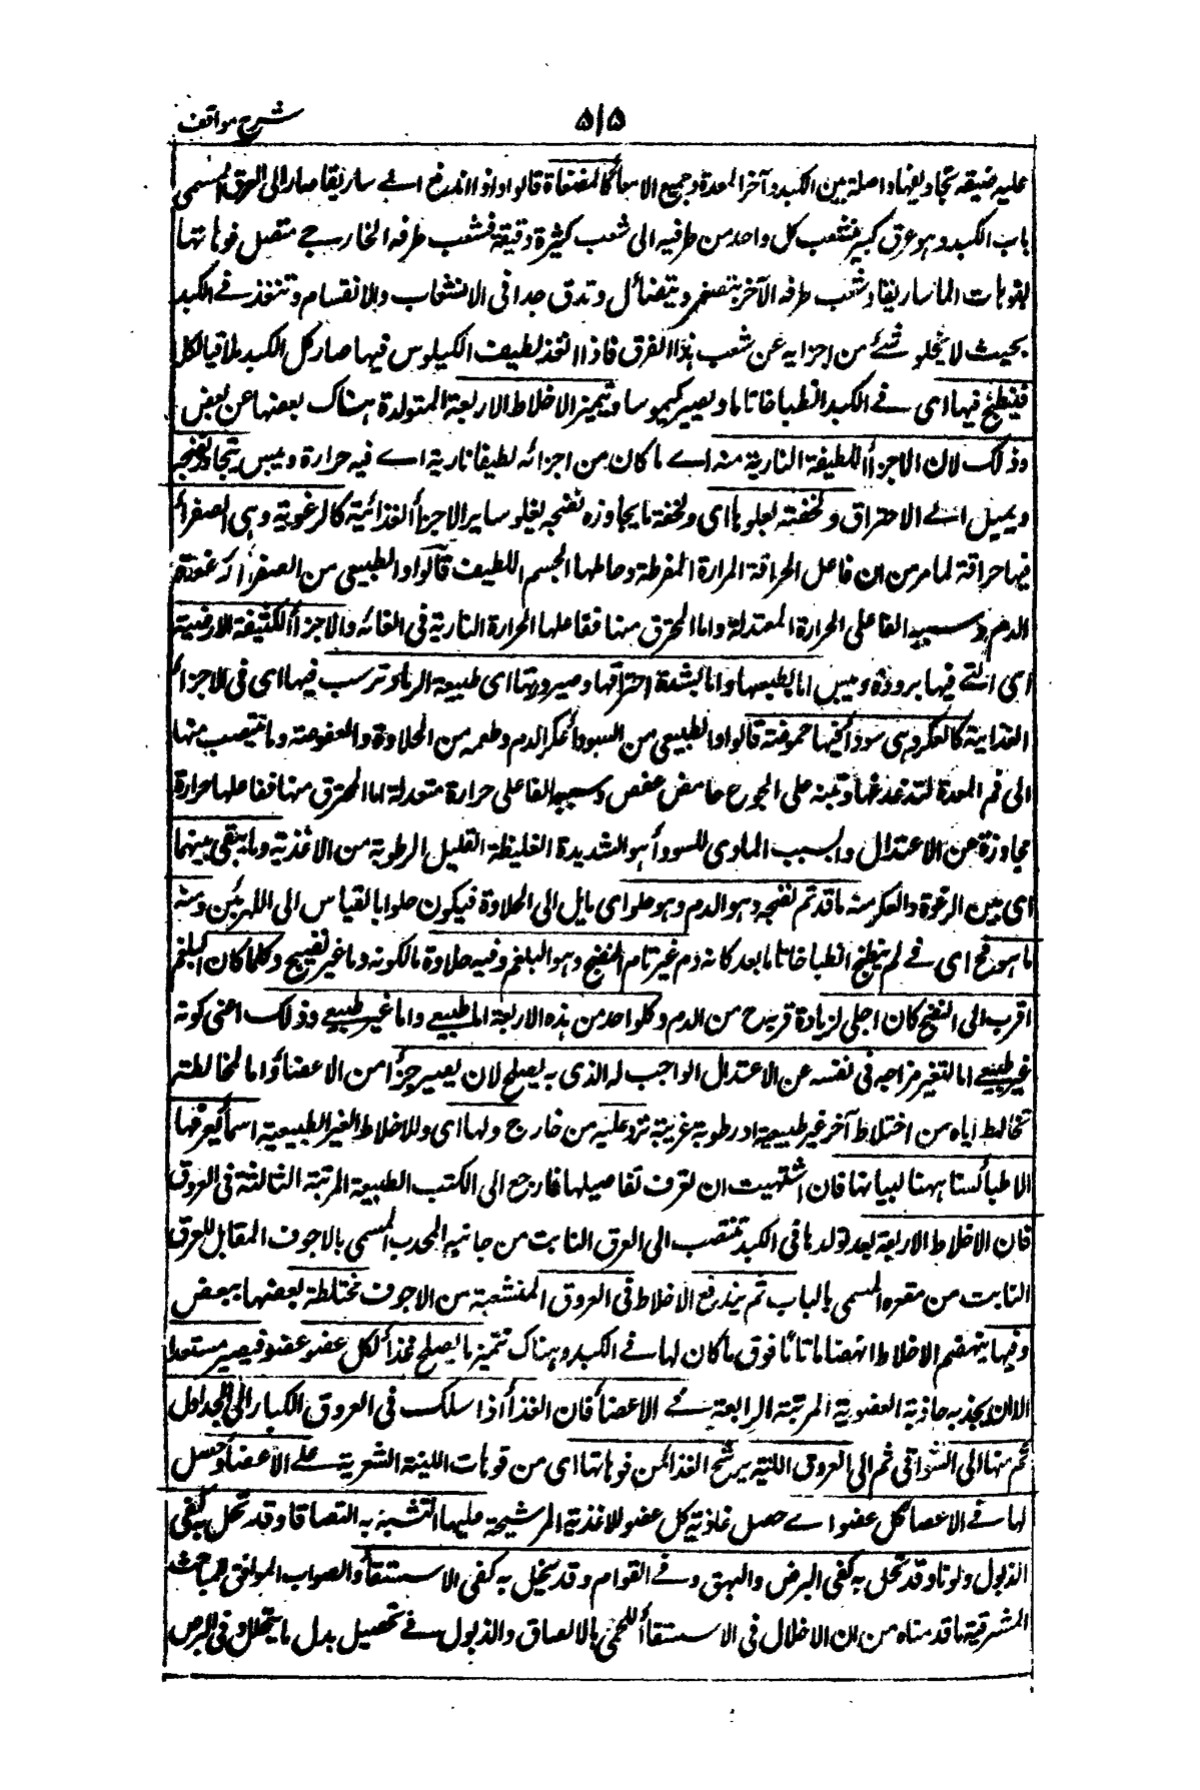 شرح مواقف
۵۱۵
عليه ضيقه تجاويفها واصلة بين الكبد وآخر المعدة وجميع الامعاء كالمصفاة قالوا واذا اندفع الى ماساريقا صار الى العرق المسمى
باب الكبد وهو عرق كبير فتشعب كل واحد من طرفيه الى شعب كثيرة دقيقة فشعب طرفه الخارجى متصل فوهاتها
بفوهات الماساريقا وشعب طرفه الآخر يتصغر ويتضائل وتدق جدا فى الانشعاب والانقسام وتنفذ فى الكبد
بحيث لا يخلو شئ من اجزايه عن شعب هذا العرق فاذا انفذ لطيف الكيلوس فيها صار كل الكبد ملاقيا لكل
فينطبخ فيها اى فى الكبد انطباخا تاما ويصير كيموسا ويتميز الاخلاط الاربعة المتولدة هناك بعضها عن بعض
وذلك لان الاجزاء اللطيفة النارية منه اى ما كان من اجزائه لطيفا نارية اى فيه حرارة ويبس يتجاوز نضجه
ويميل الى الاحتراق ولخفته يعلوها اى ولخفة ما يجاوزه نضجه يعلو ساير الاجزاء الغذائية كالرغوة وهى الصفراء
فيها حراقة لما مر من ان فاعل الحراقة الحرارة المفرطة وحاملها الجسم اللطيف قالوا والطبيعى من الصفراء رغوة
الدم وسببه الفاعلى الحرارة المعتدلة واما المحترق منها ففاعلها الحرارة النارية فى الغاية والاجزاء الكثيفة الارضية
اى التى فيها برودة ويبس اما لطبعها واما لشدة احتراقها وصيرورتها اى طبيعة الرماد ترسب فيها اى فى الاجزاء
الغذاية كالعكر وهى سوداء فيها حموضة قالوا والطبيعى من السوداء عكر الدم وطعمه من الحلاوة والعفوصة وما ينصب منها
الى فم المعدة لتدغدغها وتنبه على الجوع حامض عفص وسببه الفاعلى حرارة معتدلة اما المحترق منها ففاعلها حرارة
مجاوزة عن الاعتدال والسبب المادى للسوداء هو الشديدة الغليظة القليل الرطوبة من الاغذية وما يبقى بينهما
اى بين الرغوة والعكر منه ما قد تم نضجه وهو الدم وهو حلو اى مايل الى الحلاوة فيكون حلوا بالقياس الى اللهرئين ومنه
ما هو فج اى لم ينطبخ انطباخا تاما بعد كانه دم غير تام النضج وهو البلغم وفيه حلاوة ما لكونه دما غير نضيج وكلما كان البلغم
اقرب الى النضج كان احلى لزيادة قربه من الدم وكلواحد من هذه الاربعة اما طبيعى واما غير طبيعى وذلك اعنى كونه
غير طبيعى اما لتغير مزاجه فى نفسه عن الاعتدال الواجب له الذى به يصلح لان يصير جزءا من الاعضاء واما لمخالطته
تخالط اياه من اختلاط آخر غير طبيعية او رطوبة غريبة ترد عليه من خارج ولها اى وللاخلاط الغير الطبيعية اسماء يعرفها
الاطباء لسنا ههنا لبيانها فان اشتهيت ان تعرف تفاصيلها فارجع الى الكتب الطبية المرتبة الثالثة فى العروق
فان الاخلاط الاربعة بعد تولدها فى الكبد تنصب الى العرق النابت من جانبه المحدب المسمى بالاجوف المقابل للعرق
النابت من مقعره المسمى بالباب ثم يندفع الاخلاط فى العروق المنشعبة من الاجوف مختلطة بعضها ببعض
وفيها ينهضم الاخلاط انهضاما تاما فوق ما كان لها فى الكبد وهناك يتميز ما يصلح غذاء لكل عضو عضو فيصير مستعدا
الان يجذبه جاذبة العضوية المرتبة الرابعة فى الاعضاء فان الغذاء اذا سلك فى العروق الكبار الى الجداول
ثم منها الى السواقى ثم الى العروق الليفية يرشح الغذاء من فوهاتها اى من فوهات الليفة الشعرية على الاعضاء وحصل
لها فى الاعضاء كل عضو اى حصل غاذية كل عضو للاغذية المرشحة عليها التشبه به التصاقا وقد تخل به كفى
الذبول ولونا وقد تخل به كفى البرص والبهق وفى القوام وقد تخل به كفى الاستسقاء والصواب الموافق للمباحث
المشرقية ما قدمناه من ان الاخلال فى الاستسقاء اللحمى بالالصاق والذبول فى تحصيل بدل ما يتحلل وفى البرص